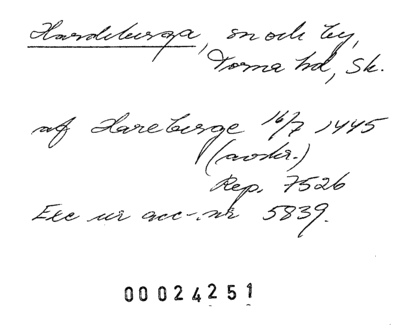 Hardeberga, sn och by,
Torna hd, Sk.
af Hareberge 16/7 1445
(avskr.)
Rep. 7526
Exc ur acc-nr 5839.
00024251